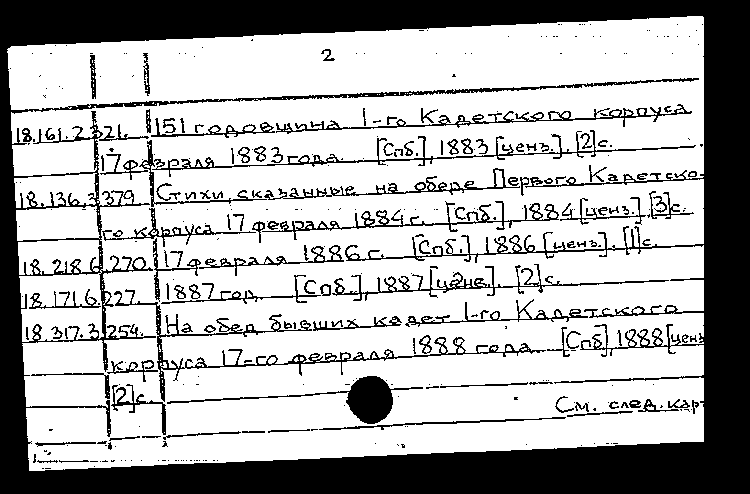 2
18.161.2.321. 151 годовщина 1-го Кадетского корпуса
17 февраля 1883 года. [Спб.], 1883 [ценз.]. [2]с.
18.136.3.379 Стихи, сказанные на обеде Первого Кадетско-
го корпуса 17 февраля 1884 г. [Спб.], 1884 [ценз.]. [3]с.
18.218.6.270. 17 февраля 1886 г. [Спб.], 1886 [ценз.]. [1]с.
18.171.6.227. 1887 год. [Спб.], 1887 [цене.]. [2]с.
18.317.3.254. На обед бывших кадет 1-го Кадетского
корпуса 17-го февраля 1888 года. [Спб], 1888 [ценз
[2]с.
См. след. карт